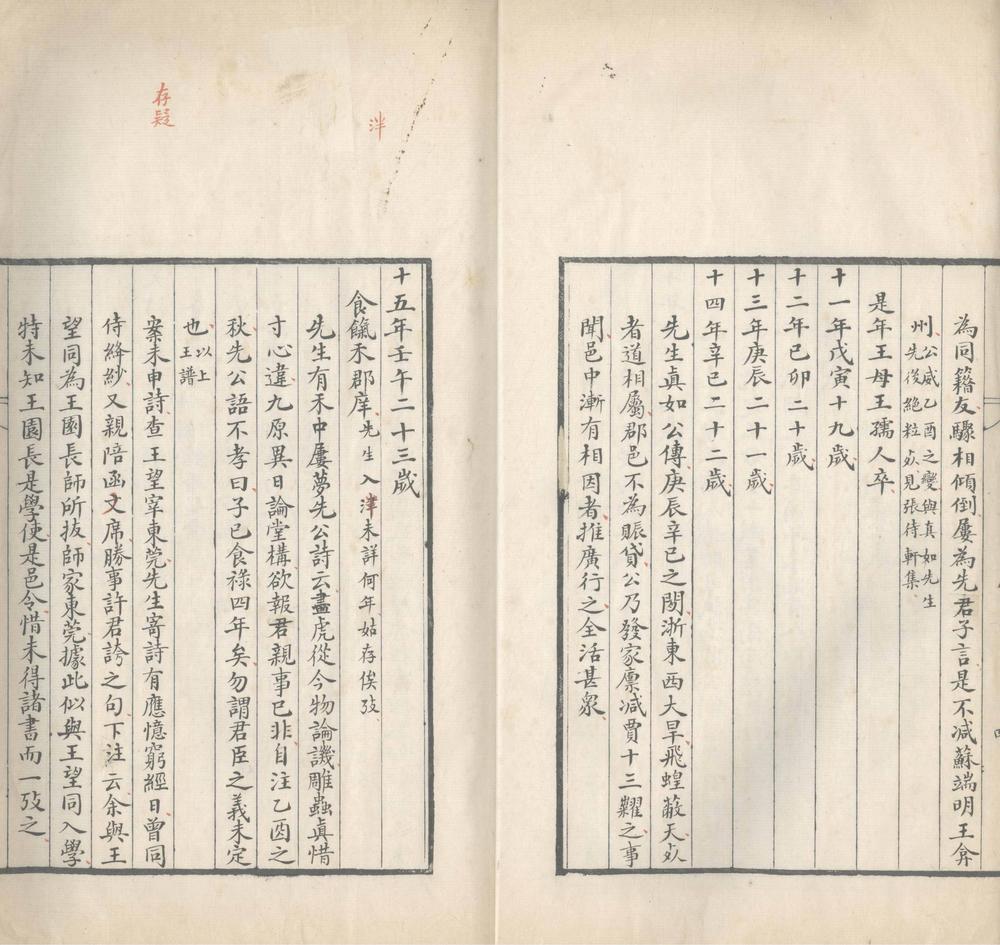 為同籍友驟相傾倒屢為先君子言是不减蘇端明王弇
州公咸乙酉之變與真如先生
先後絶粒㱕見張待軒集
是年王母王孺人卒
十一年戊寅十九歲
十二年己卯二十歲
十三年庚辰二十一歲
十四年辛巳二十二歲
先生真如公傳庚辰辛巳之間浙東西大旱飛蝗蔽天㱕
者道相屬郡邑不為賑貸公乃發家廪减賈十三糶之事
聞邑中漸有相因者推廣行之全活甚衆
存疑
泮
十五年壬午二十三歲
食餼禾郡庠先生入津未詳何年姑存俟攷
先生有禾中屢夢先公詩云畫虎從今物論譏雕蟲真惜
寸心違九原異日論堂構欲報君親事已非自注乙酉之
秋先公語不孝曰子已食禄四年矣勿謂君臣之義未定
也以上
王譜
案未申詩查王望宰東莞先生寄詩有應憶窮經日曾同
侍絳紗又親陪函文席勝事許君誇之句下注云余與王
望同為王園長師所拔師家東莞據此似與王望同入學
特未知王園長是學使是邑令惜未得諸書而一攷之